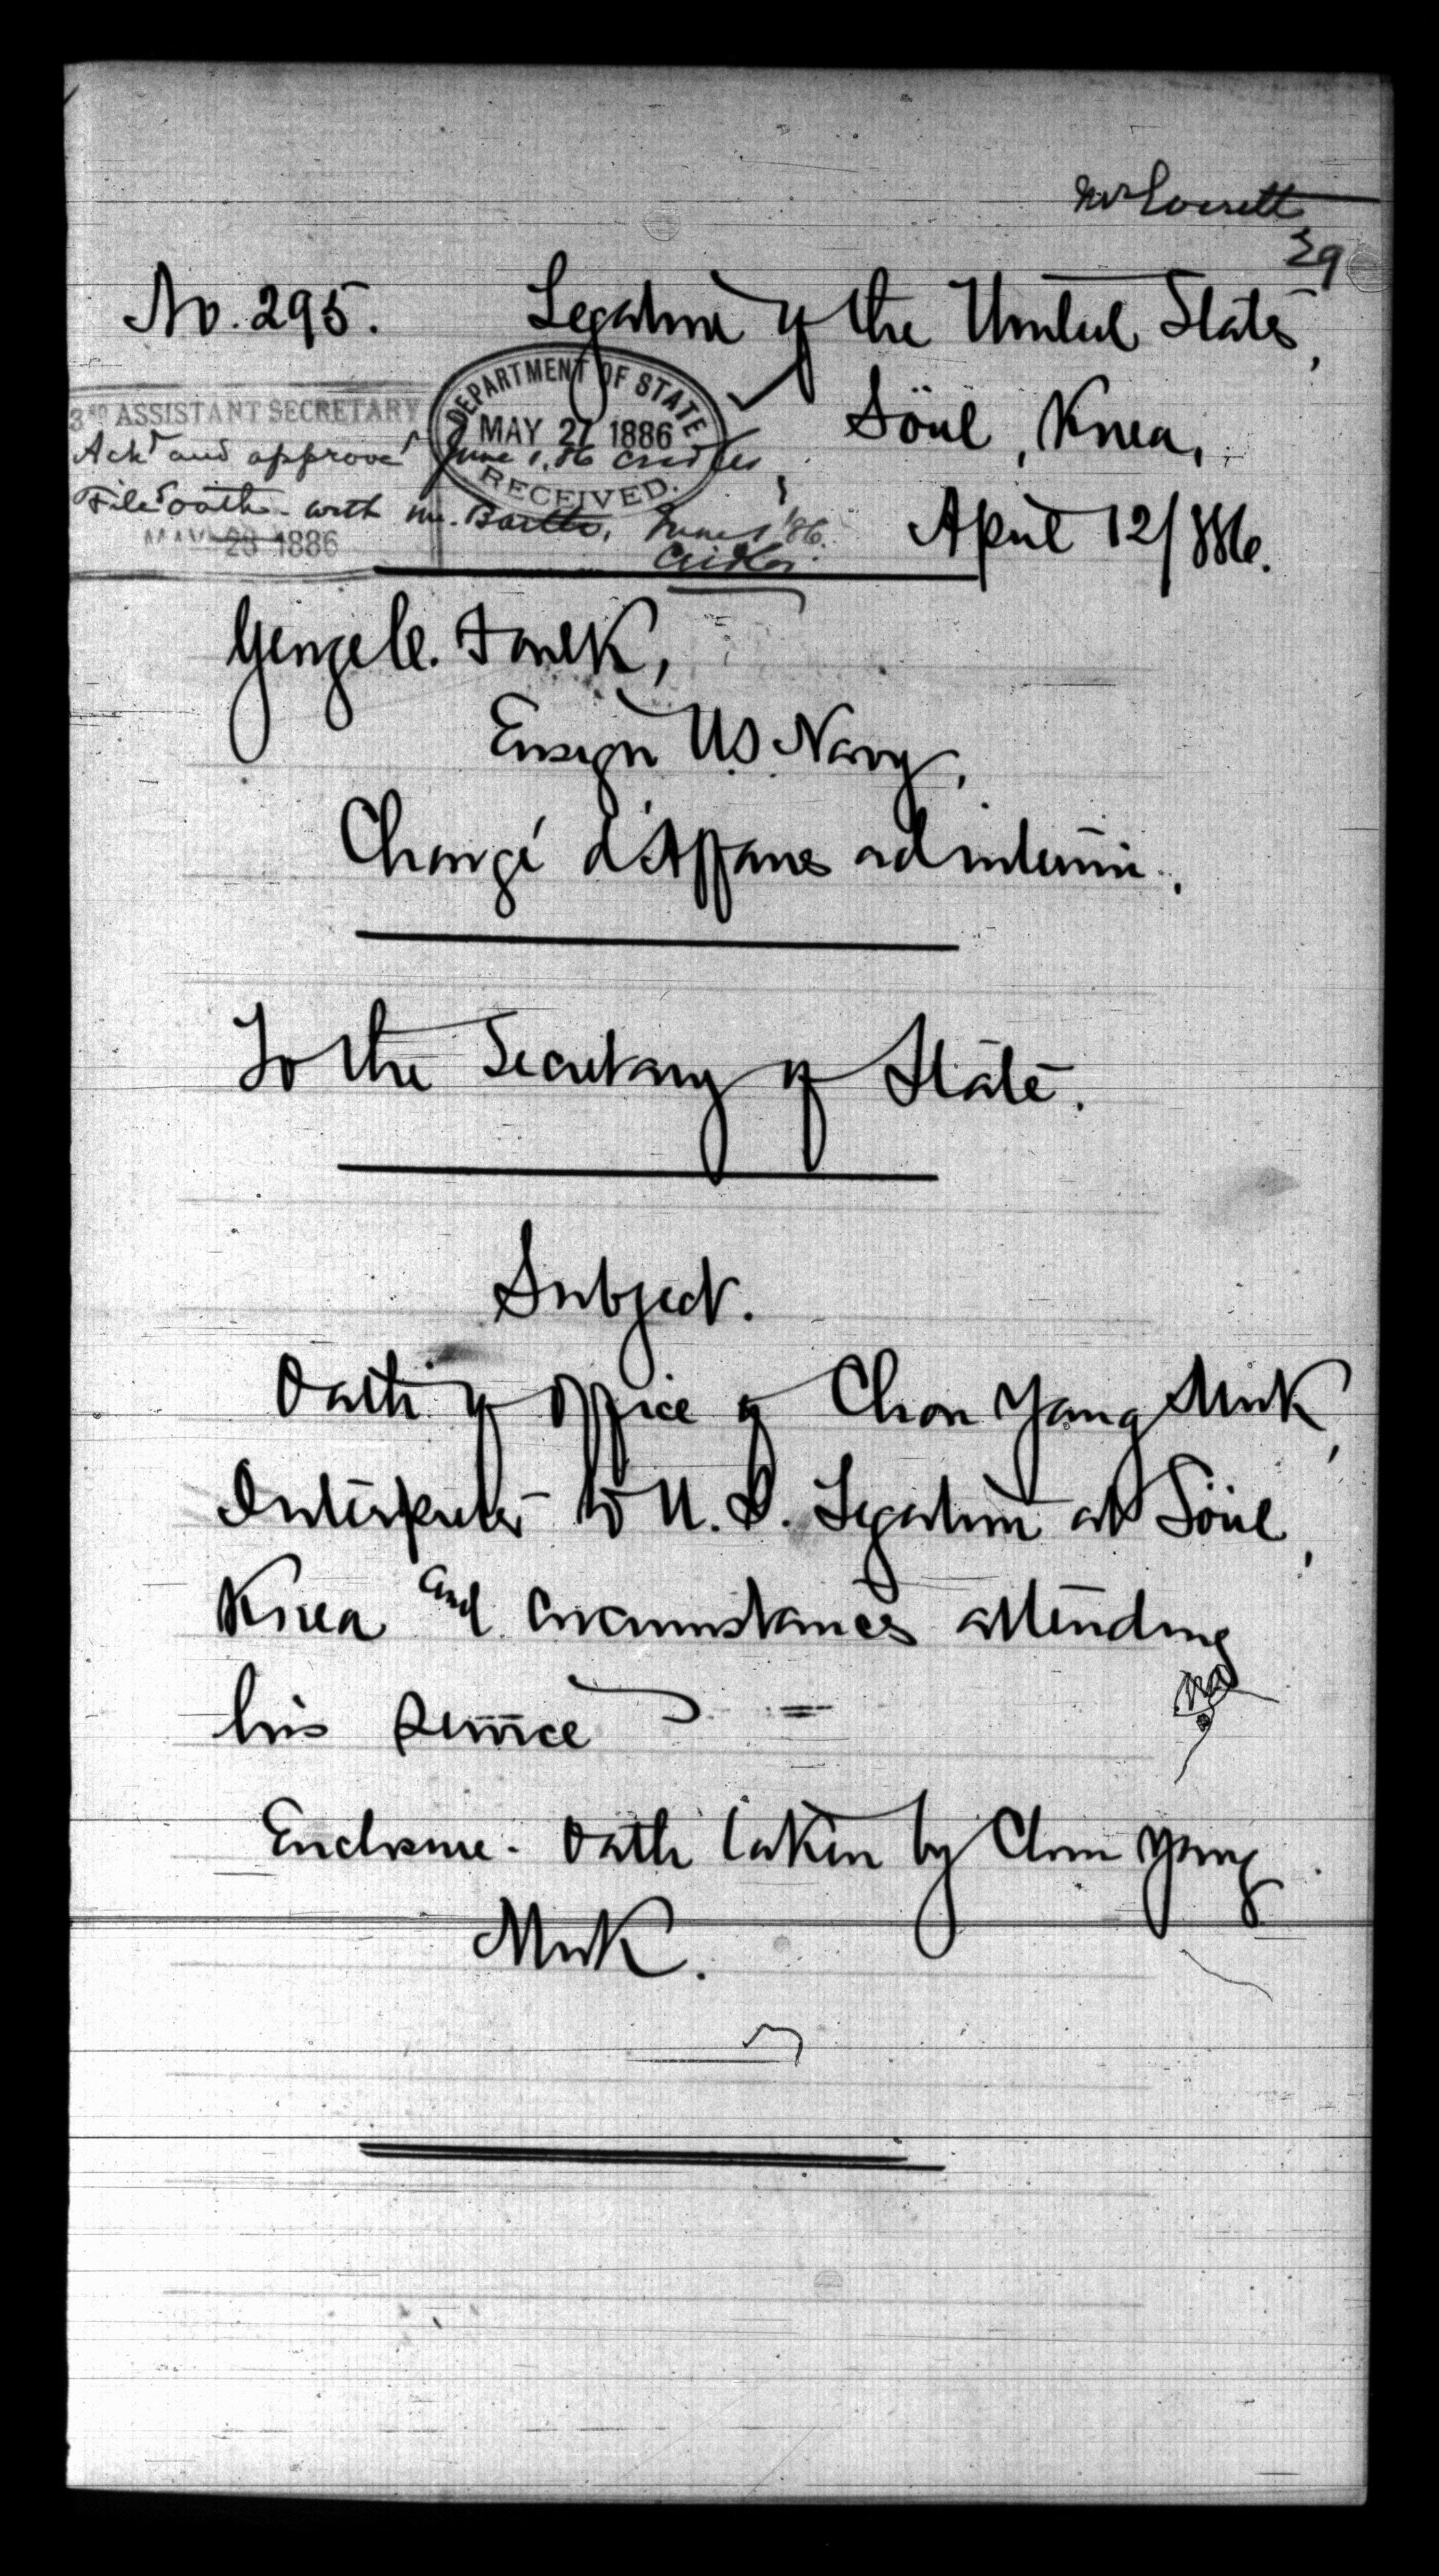 Mr Everett
29
No. 295. Legation of the United States,
Söul, Korea,
April 12/886.
3RD ASSISTANT SECRETARY
DEPARTMENT OF STATE
MAY 27 1886
RECEIVED.
Ackd and approved June 1, 86 Cridler
File oath with Mr. Bartle, June 1 '86.
Cridler
MAY 28 1886
George C. Foulk,
Ensign U.S. Navy,
Chargé d'Affaires ad interim.
To the Secretary of State.
Subject.
Oath of office of Chon Yang Muk,
Interpreter to U.S. Legation at Söul,
Korea and circumstances attending
his service
Enclosure - Oath taken by Chon Yang
Muk.